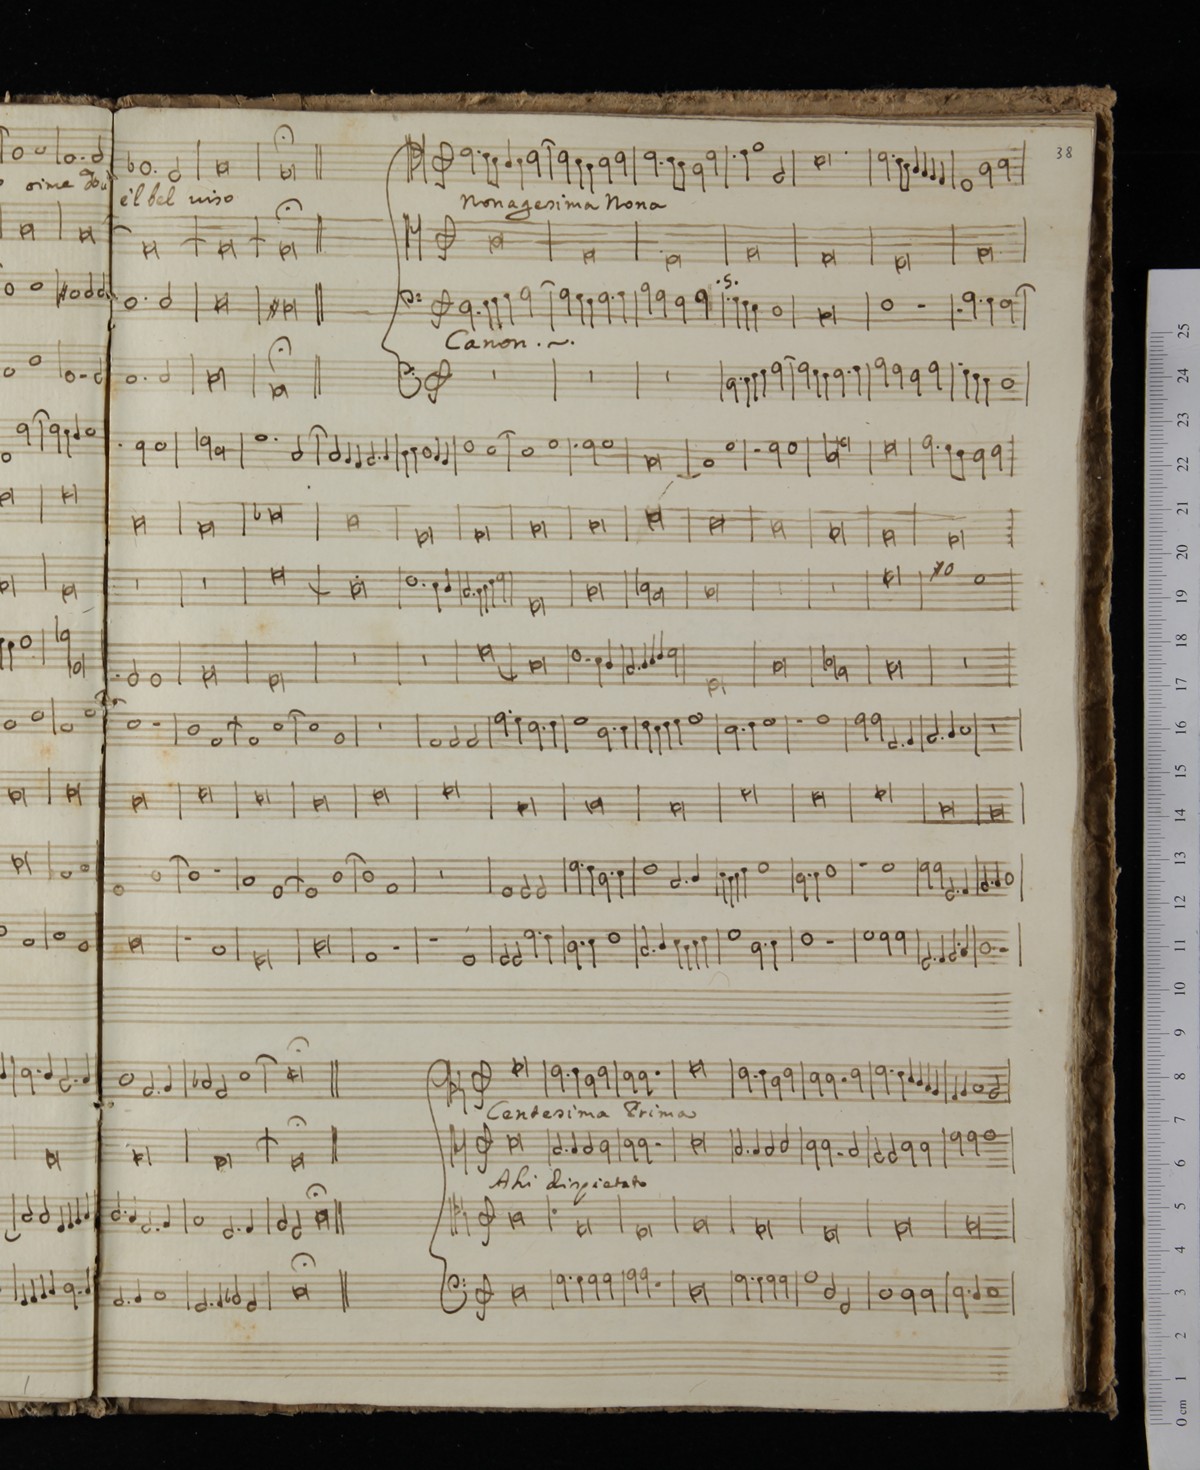 38
oime
e'l bel viso
Nonagesima Nona
.S.
Canon
Centesima Prima
Ahi dispietato
25
24
23
22
21
20
19
18
17
16
15
14
13
12
11
10
9
8
7
6
5
4
3
2
1
0 cm